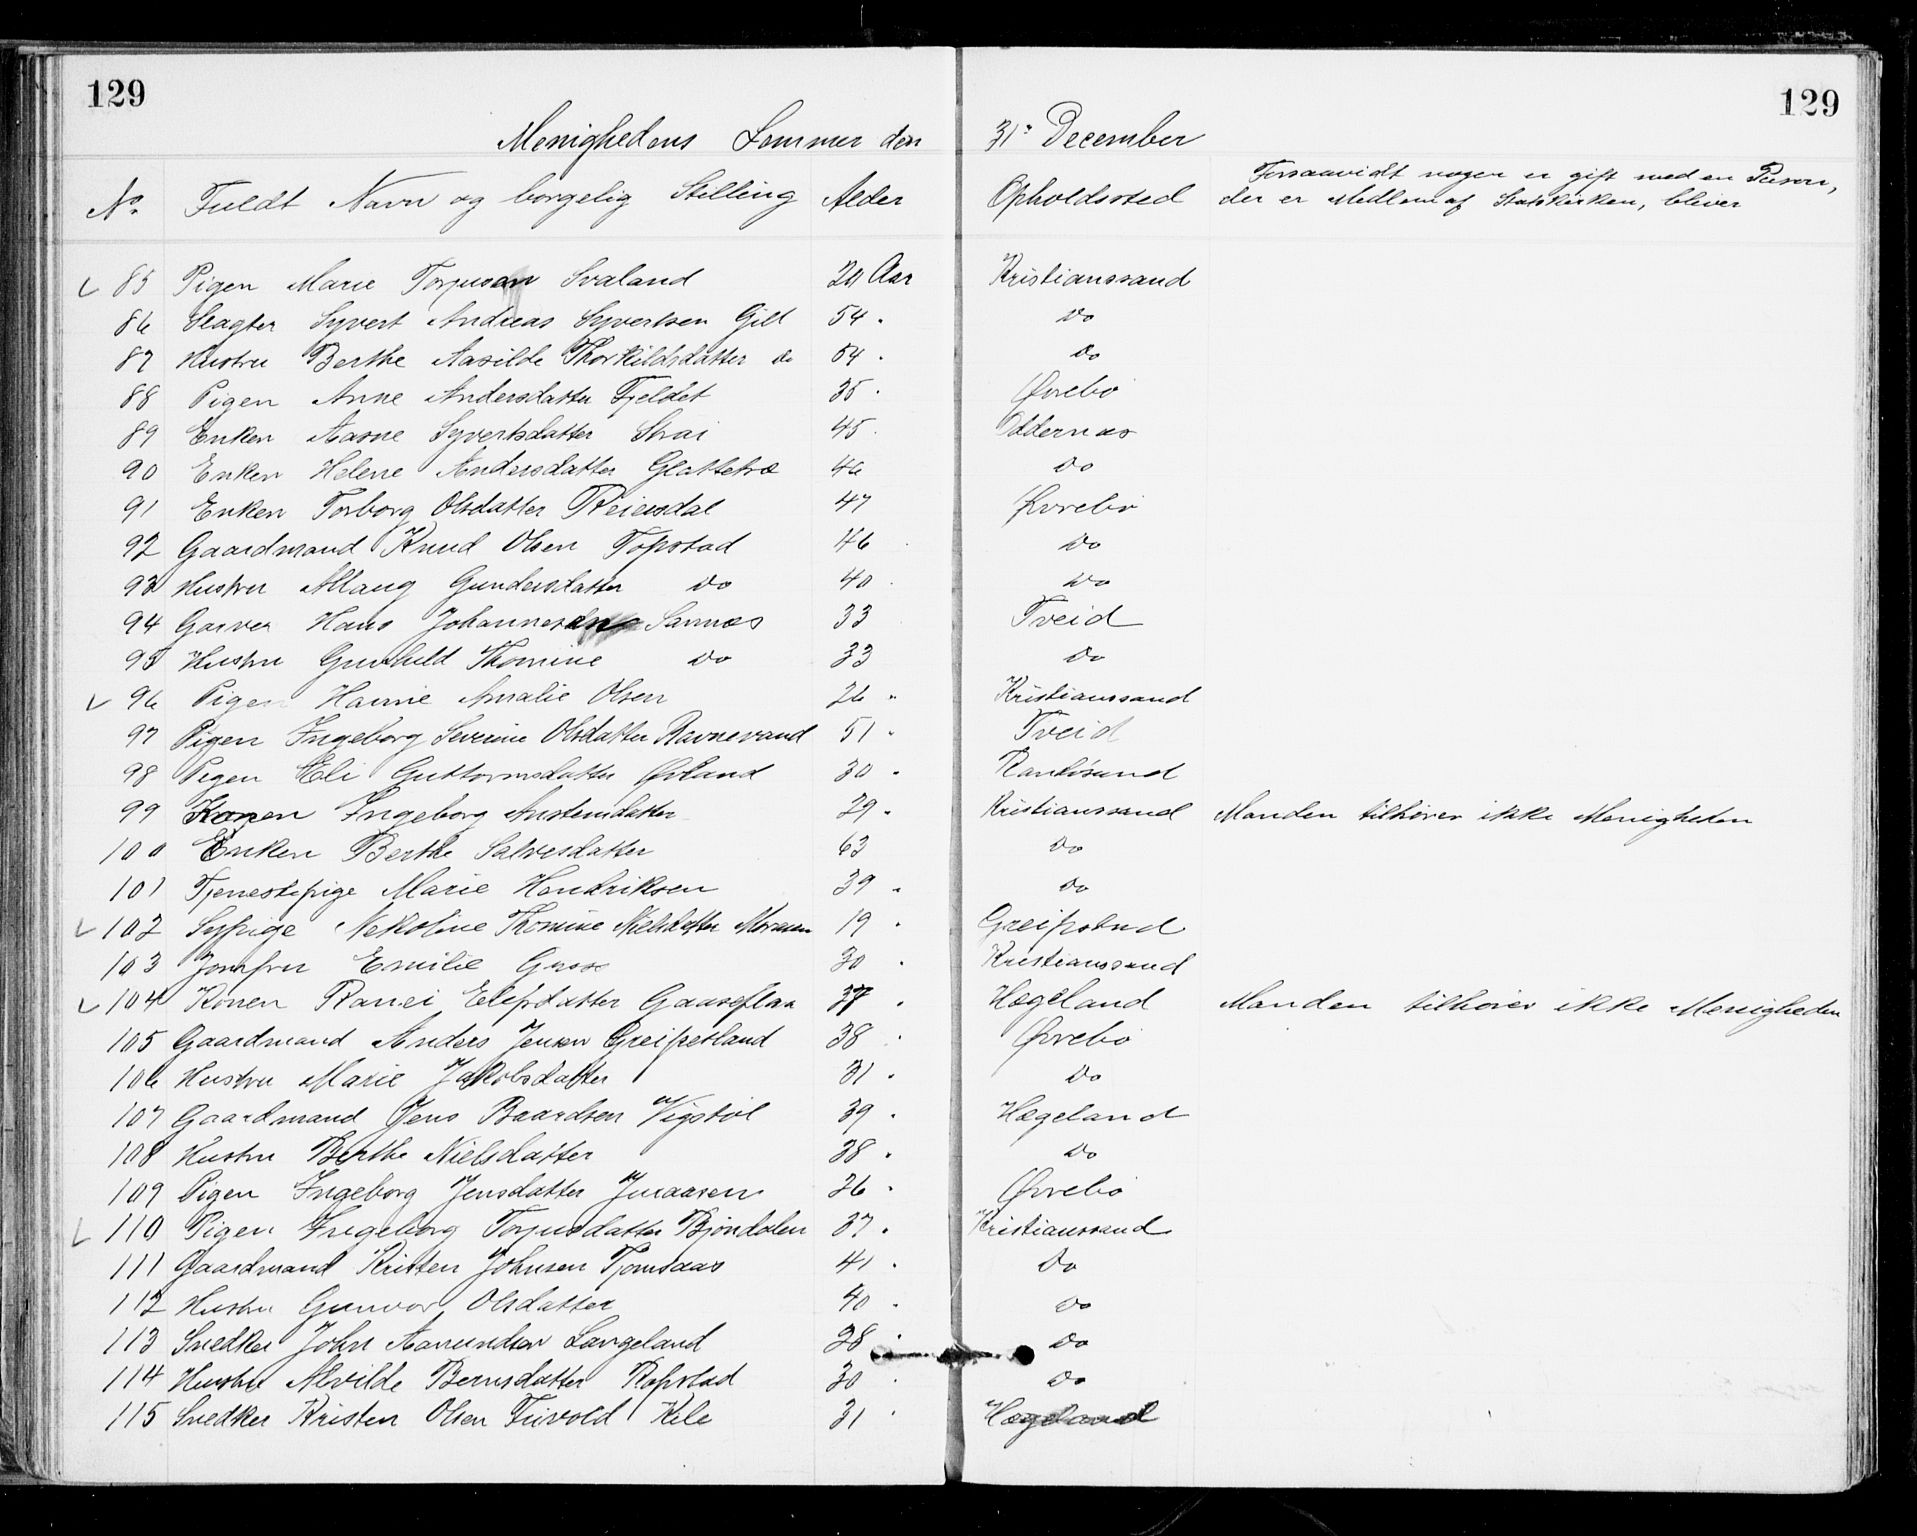 129 129
Menighedens Lemmer den 31. December
No. Fuldt Navn og borgelig Stilling Alder Opholdssted Forsaavidt nogen er gift med en Person,
der er Medlem af Statskirken, bliver
85 Pigen Marie Svaland 20 Aar Kristianssand
86 Slagter Syvert Andreas Syvertsen Gill 54 " Do
87 Hustru Berthe Aasilde Thorkildsdatter do 54 " Do
88 Pigen Anne Andersdatter Fjeldet 35 " Øvrebö
89 Enken Aasne Syvertsdatter Strai 45 " Oddernæs
90 Enken Helene Andersdatter Glattetræ 46 Do
91 Enken Torborg Olsdatter Reiersdal 47 Øvrebö
92 Gaardmand Knud Olsen Topstad 46 " Do
93 Hustru Allaug Gundersdatter Do 40 " Do
94 Garver Hans Johannes Sannæs 33 Tveid
95 Hustru Gunhild Thomine Do 33 Do
96 Pigen Hanne Amalie Olsen 26 " Kristianssand
97 Pigen Ingeborg Severine Olsdatter Ravnevand 51 " Tveid
98 Pigen Eli Guttormsdatter Øvland 30 " Randösund
99 Konen Ingeborg Austensdatter 29 " Kristianssand Manden tilhører ikke Menigheden
100 Enken Berthe Salvesdatter 63 Do
101 Tjenestepige Marie Hendriksen 39 " Do
102 Sypige Nekoline Thomine Nielsdatter 19 " Greipstad
103 Jomfru Emilie 30 " Kristianssand
104 Konen Ranei Elefsdatter Gaaseflaa 37 " Hægeland Manden tilhører ikke Menigheden
105 Gaardmand Anders Jensen Greipesland 38 " Øvrebö
106 Hustru Marie Jakobsdatter 31 " Do
107 Gaardmand Jens Baardsen Vigstöl 39 " Hægeland
108 Hustru Berthe Nielsdatter 38 " Do
109 Pigen Ingeborg Jensdatter 26 " Øvrebö
110 Pigen Ingeborg Torjusdatter Bjöndalen 37 " Kristianssand
111 Gaardmand Kristen Johnsen Tjomsaas 41 " Do
112 Hustru Gunvor Olsdatter 40 " Do
113 Snedker John Aanundsen Langeland 28 " Do
114 Hustru Alvilde Berntsdatter Ropstad 30 " Do
115 Snedker Kristen Olsen Kile 31 " Hægeland